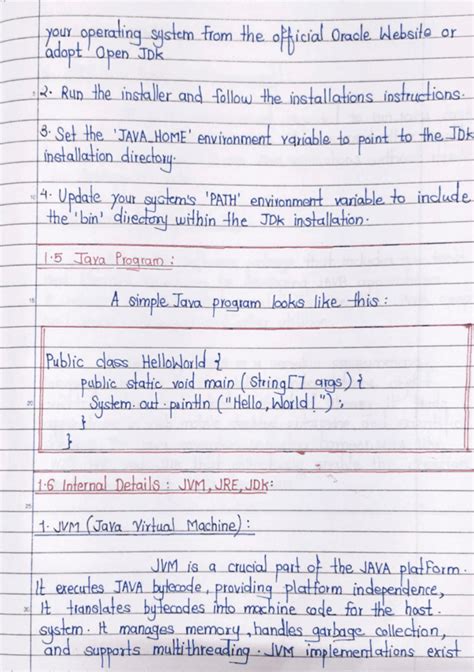 your operating system from the official Oracle Website or
adopt Open JDK
2. Run the installer and follow the installations instructions.
3. Set the 'JAVA_HOME' environment variable to point to the JDK
installation directory.
4. Update your system's 'PATH' environment variable to include
the 'bin' directory within the JDK installation.
1.5 Java Program:
A simple Java program looks like this:
Public class HelloWorld {
public static void main (String[] args) {
System.out.println ("Hello, World!");
}
}
1.6 Internal Details: JVM, JRE, JDK:
1. JVM (Java Virtual Machine):
JVM is a crucial part of the JAVA platform.
It executes JAVA bytecode, providing platform independence,
It translates bytecodes into machine code for the host
system. It manages memory, handles garbage collection,
and supports multithreading. JVM implementations exist